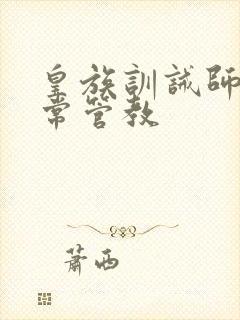 皇族訓誡師
常管教
萧西